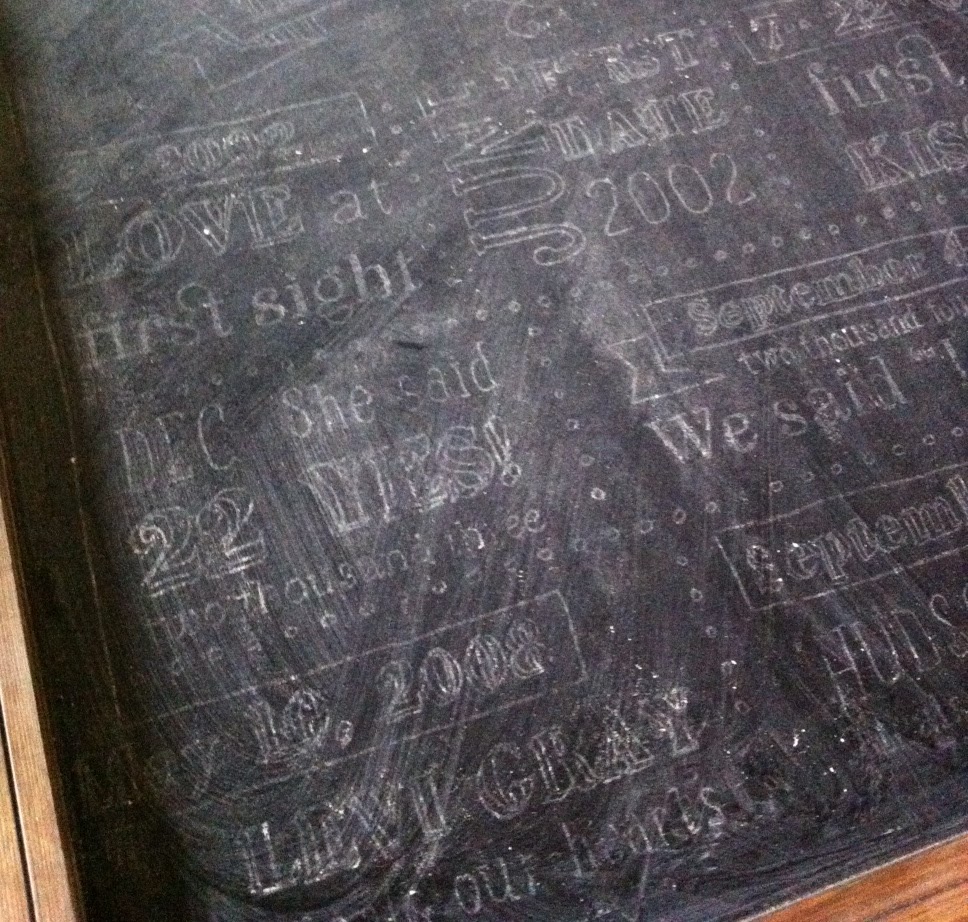 2002
LOVE at
first sight
JUN
FIRST
DATE
2002
7. 22
first
KISS
September 4
two thousand four
We said "I
DEC
22
She said
YES!
two thousand three
May 16, 2008
LEXI GRAY
our hearts
September
HUDSO